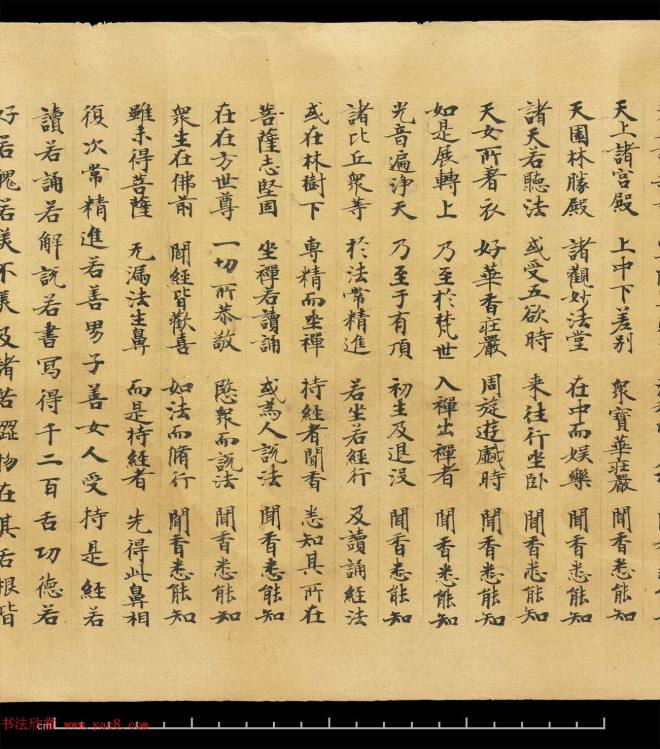 天上諸宮殿 上中下差別 眾寶華莊嚴 聞香悉能知
天園林勝殿 諸觀妙法堂 在中而娛樂 聞香悉能知
諸天若聽法 或受五欲時 來往行坐臥 聞香悉能知
天女所著衣 好華香莊嚴 周旋遊戲時 聞香悉能知
如是展轉上 乃至於梵世 入禪出禪者 聞香悉能知
光音遍淨天 乃至于有頂 初生及退沒 聞香悉能知
諸比丘眾等 於法常精進 若坐若經行 及讀誦經法
或在林樹下 專精而坐禪 持經者聞香 悉知其所在
菩薩志堅固 坐禪若讀誦 或為人說法 聞香悉能知
在在方世尊 一切所恭敬 愍眾而說法 聞香悉能知
眾生在佛前 聞經皆歡喜 如法而脩行 聞香悉能知
雖未得菩薩 无漏法生鼻 而是持經者 先得此鼻相
復次常精進若善男子善女人受持是經若
讀若誦若解說若書寫得千二百舌功德若
好若醜若美不美及諸苦澀物在其舌根皆
cm
书法欣赏 www.yac8.com